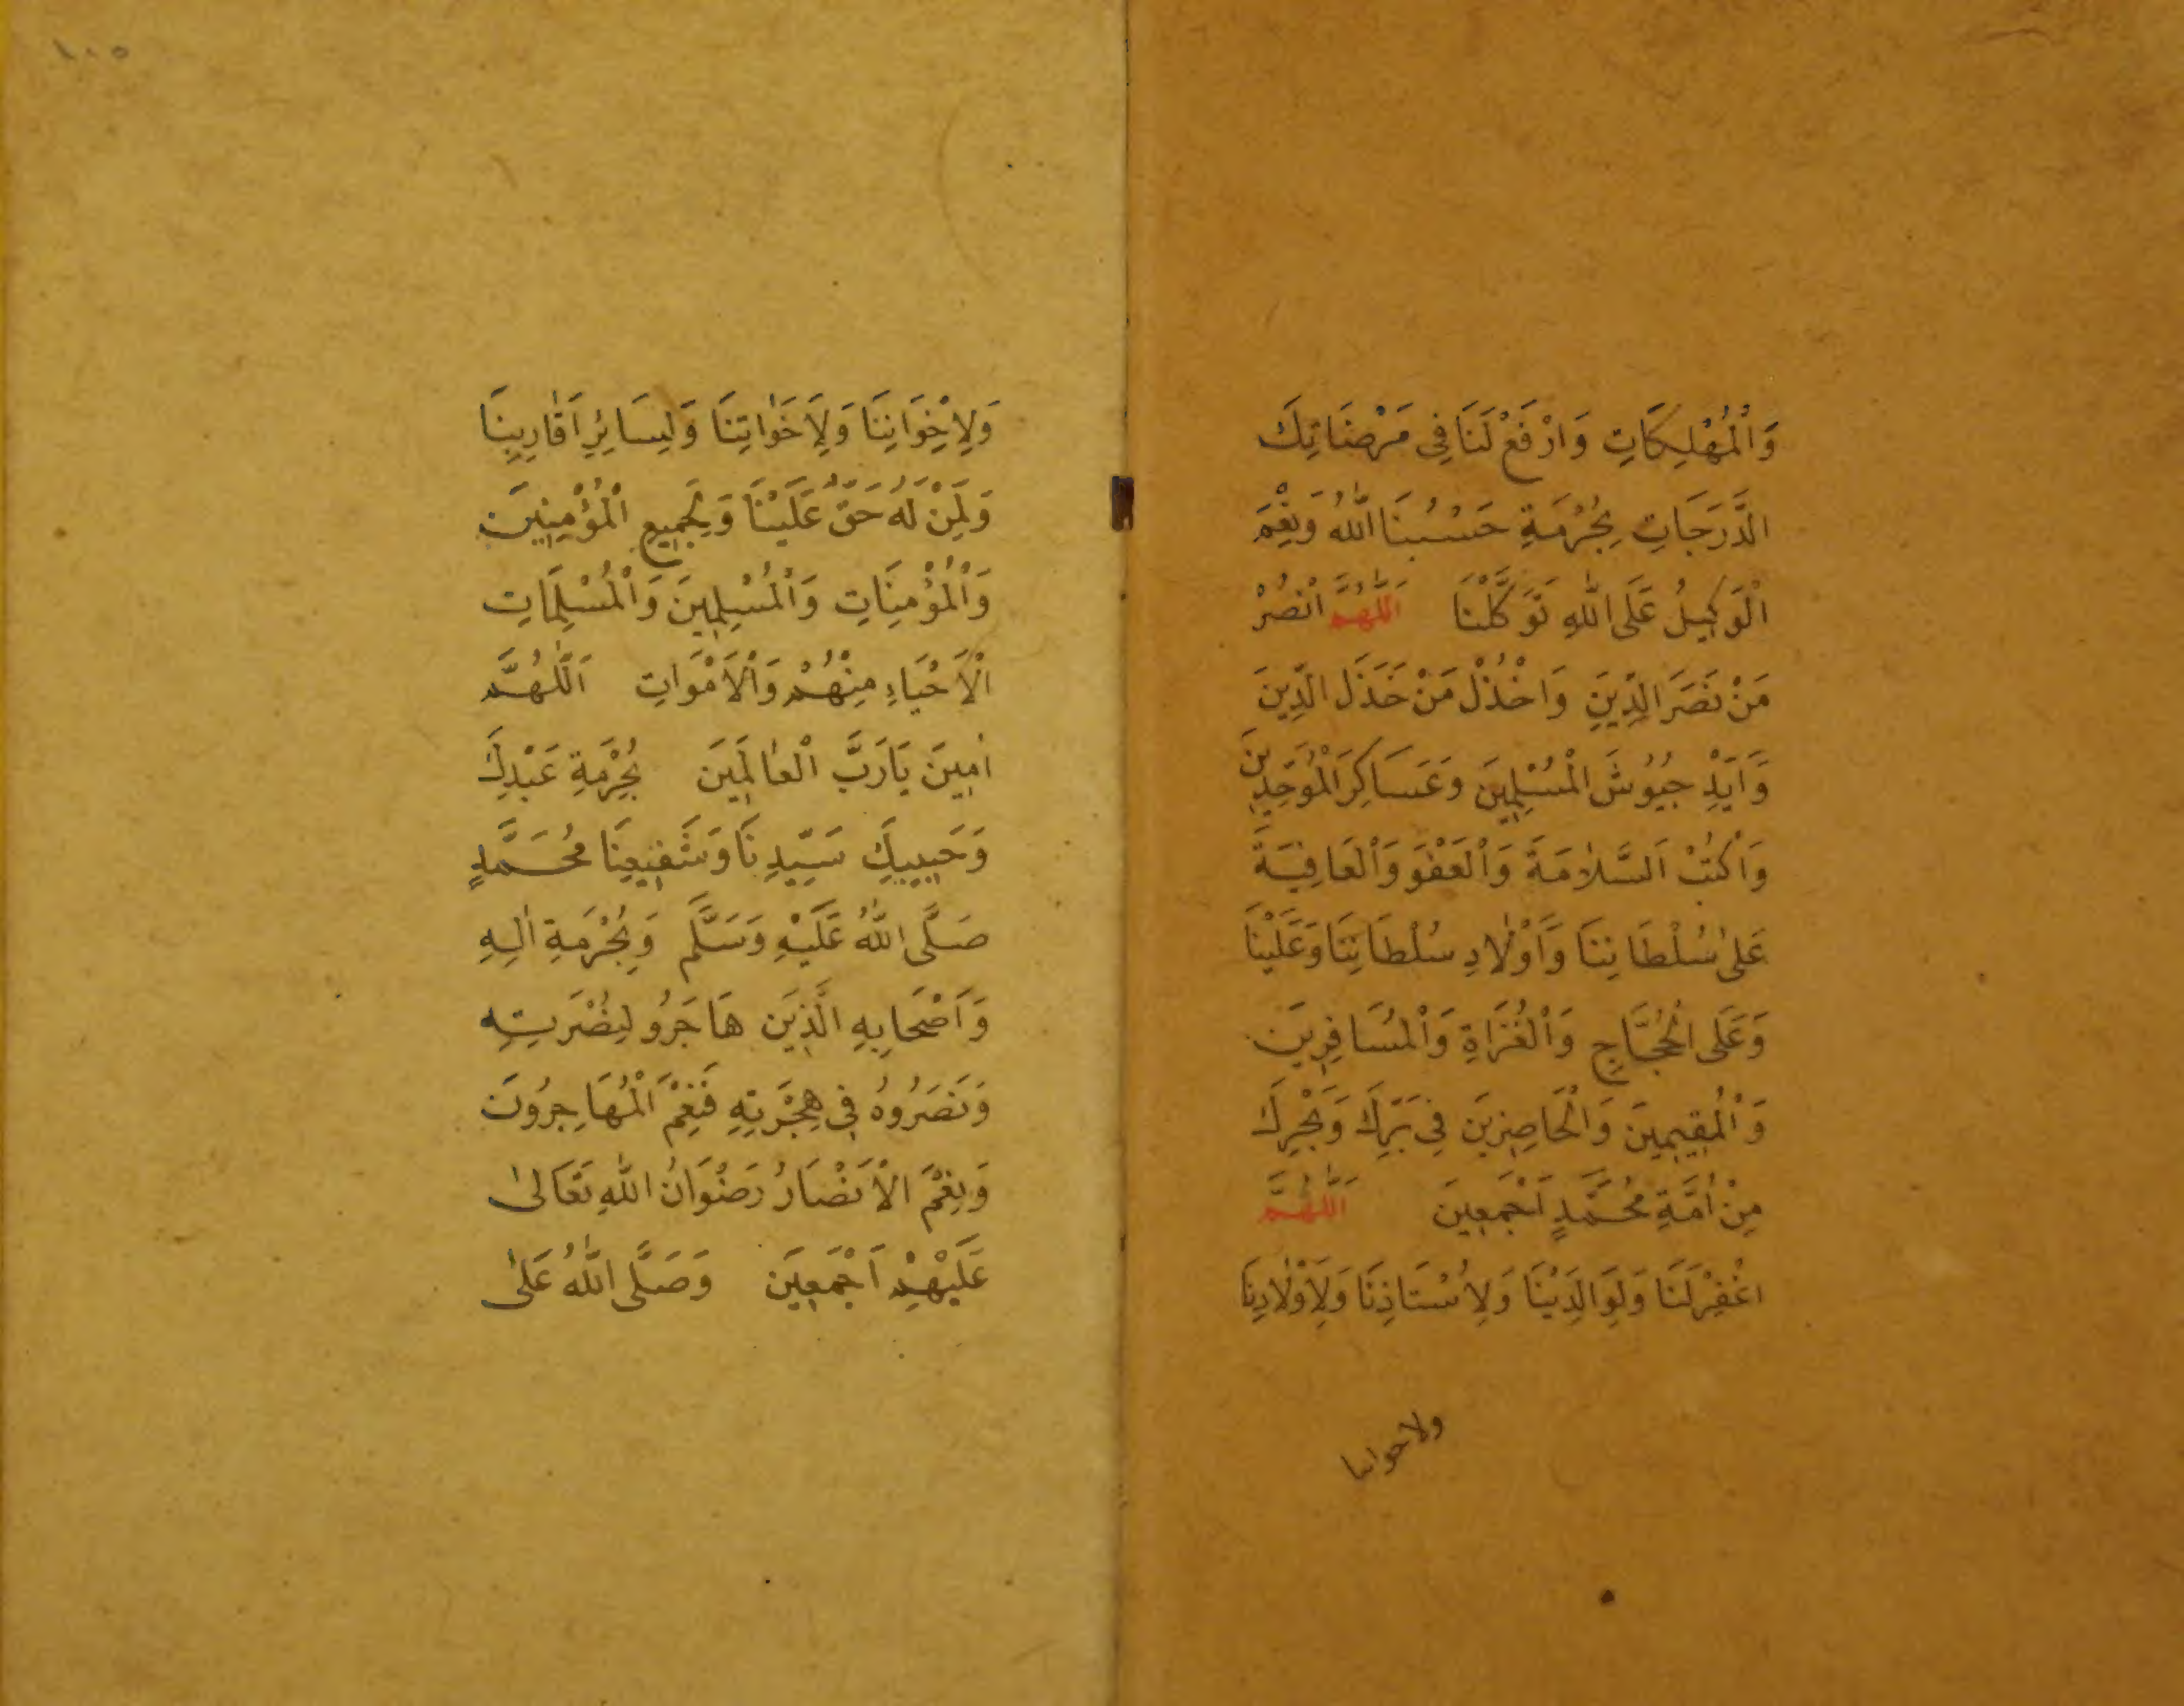 وَالْمُهْلِكَاتِ وَارْفَعْ لَنَا فِى مَرْضَاتِكَ
الدَّرَجَاتِ بِحُرْمَةِ حَسْبُنَا اللّٰهُ وَنِعْمَ
الْوَكِيلُ عَلَى اللّٰهِ تَوَكَّلْنَا اَللّٰهُمَّ انْصُرْ
مَنْ نَصَرَ الدِّينَ وَاخْذُلْ مَنْ خَذَلَ الدِّينَ
وَاَيِّدْ جُيُوشَ الْمُسْلِمِينَ وَعَسَاكِرَ الْمُوَحِّدِينَ
وَاكْتُبْ اَلسَّلَامَةَ وَالْعَفْوَ وَالْعَافِيَةَ
عَلٰى سُلْطَانِنَا وَاَوْلَادِ سُلْطَانِنَا وَعَلَيْنَا
وَعَلَى الْحُجَّاجِ وَالْغُزَاةِ وَالْمُسَافِرِينَ
وَالْمُقِيمِينَ وَالْحَاضِرِينَ فِى بَرِّكَ وَبَحْرِكَ
مِنْ اُمَّةِ مُحَمَّدٍ اَجْمَعِينَ اَللّٰهُمَّ
اغْفِرْ لَنَا وَلِوَالِدَيْنَا وَلِاُسْتَاذِنَا وَلِاَوْلَادِنَا
ولاخواننا
١٠٥
وَلِاِخْوَانِنَا وَلِاَخَوَاتِنَا وَلِسَائِرِ اَقَارِبِنَا
وَلِمَنْ لَهُ حَقٌّ عَلَيْنَا وَلِجَمِيعِ الْمُؤْمِنِينَ
وَالْمُؤْمِنَاتِ وَالْمُسْلِمِينَ وَالْمُسْلِمَاتِ
الْاَحْيَاءِ مِنْهُمْ وَالْاَمْوَاتِ اَللّٰهُمَّ
اٰمِينَ يَارَبَّ الْعَالَمِينَ بِحُرْمَةِ عَبْدِكَ
وَحَبِيبِكَ سَيِّدِنَا وَشَفِيعِنَا مُحَمَّدٍ
صَلَّى اللّٰهُ عَلَيْهِ وَسَلَّمَ وَبِحُرْمَةِ اٰلِهِ
وَاَصْحَابِهِ الَّذِينَ هَاجَرُو لِنُصْرَتِهِ
وَنَصَرُوهُ فِى هِجْرَتِهِ فَنِعْمَ الْمُهَاجِرُونَ
وَنِعْمَ الْاَنْصَارُ رِضْوَانُ اللّٰهِ تَعَالٰى
عَلَيْهِمْ اَجْمَعِينَ وَصَلَّى اللّٰهُ عَلٰى